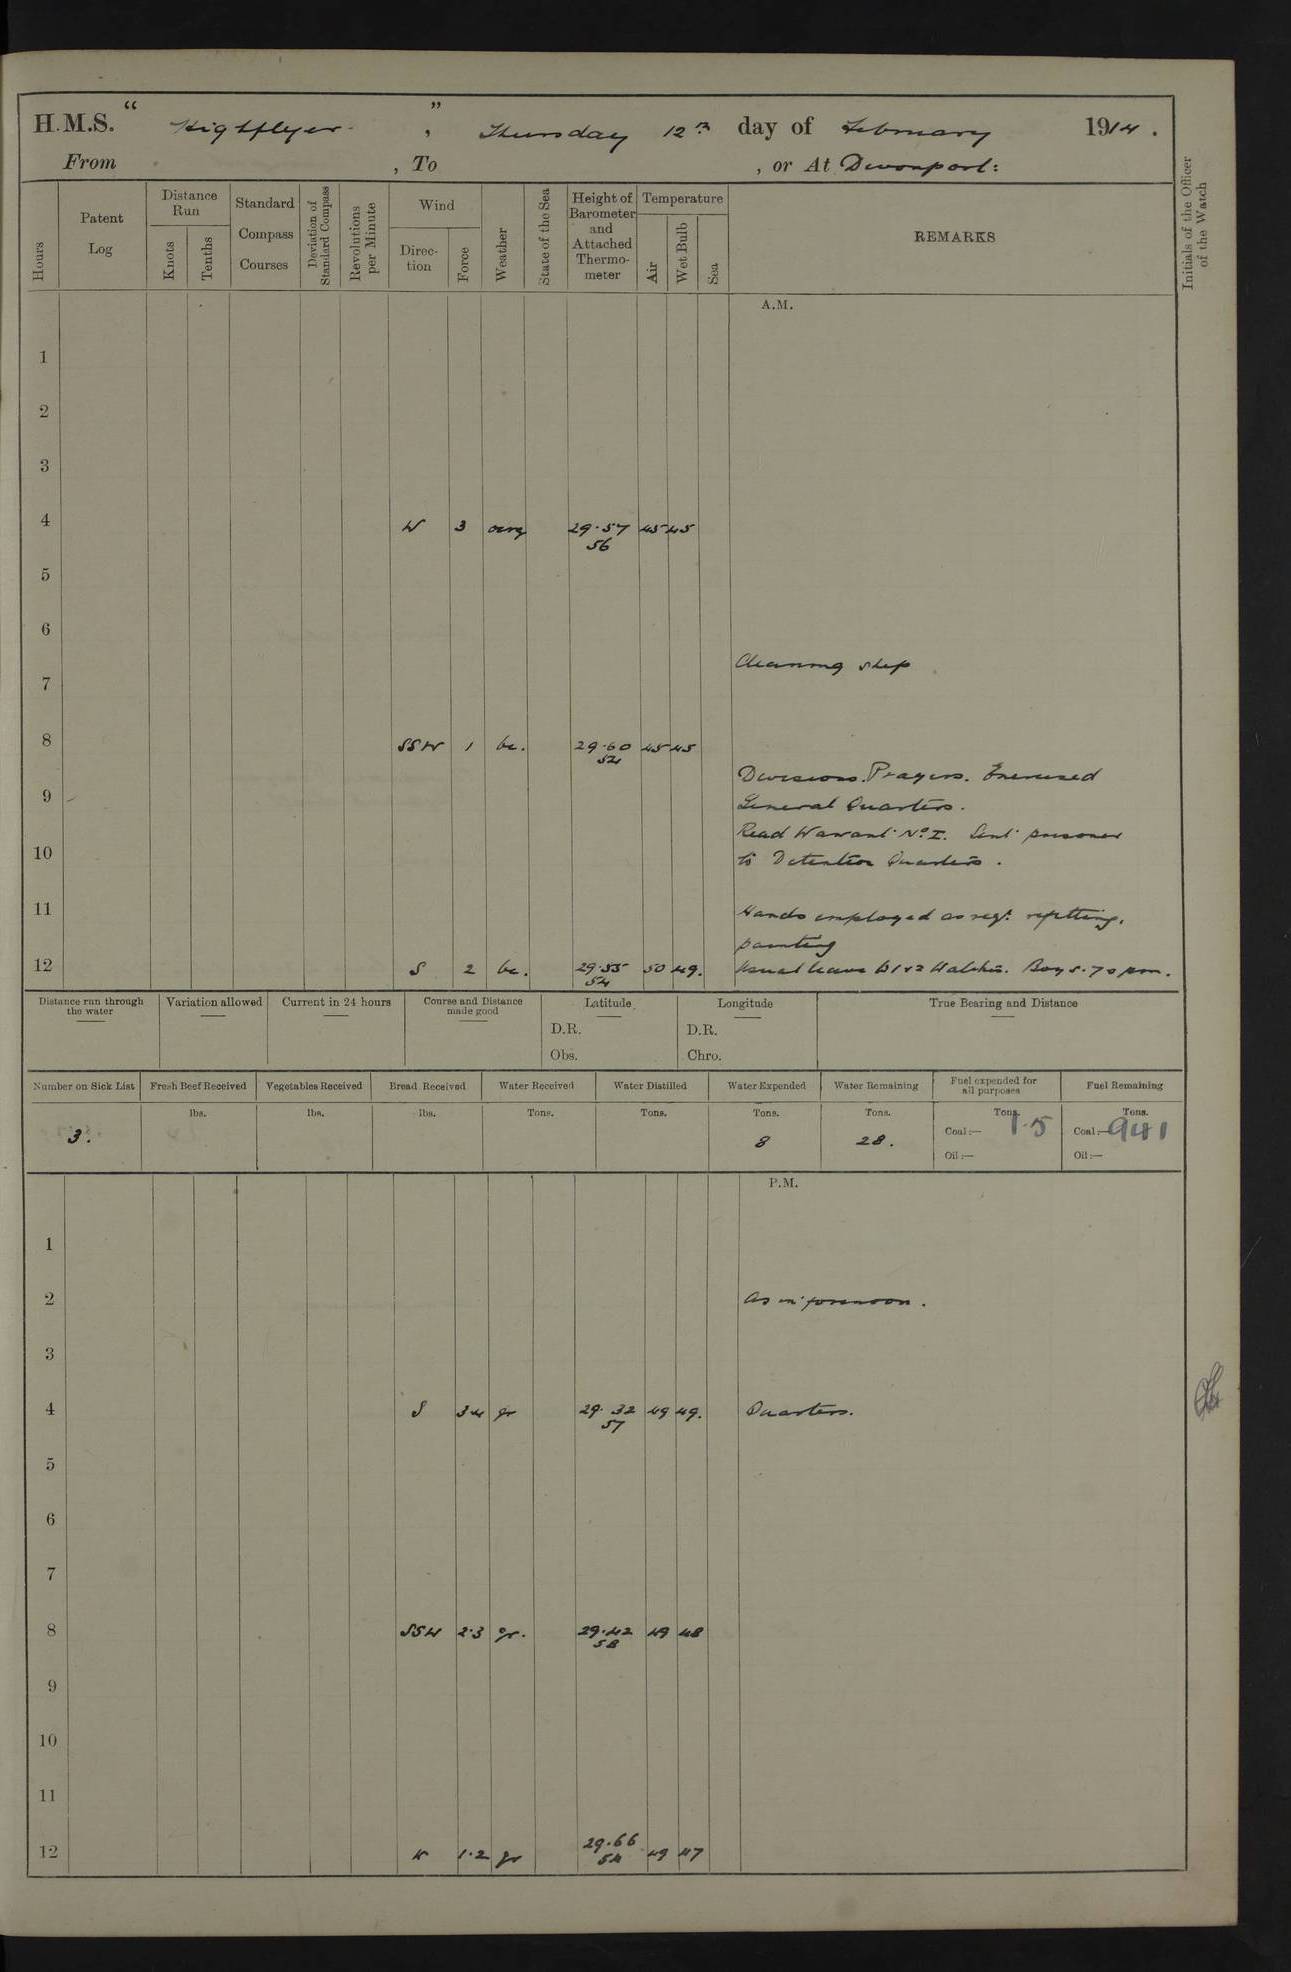 H.M.S. "Highflyer", Thursday 12th day of February 1914.
From , To , or At Devonport:
Hours Patent Log Distance Run Knots Tenths Standard Compass Courses Deviation of Standard Compass Revolutions per Minute Wind Direction Force Weather State of the Sea Height of Barometer and Attached Thermometer Temperature Air Wet Bulb Sea REMARKS Initials of the Officer of the Watch
A.M.
1
2
3
4 W 3 29.57 45 45
56
5
6
Cleaning ship
7
8 SSW 1 bc. 29.60 45 45
54
Divisions. Prayers. Exercised
9 General Quarters.
Read Warrant No I. Sent prisoner
10 to Detention Quarters.
11 Hands employed as req: refitting,
painting
12 S 2 bc. 29.55 50 49. Usual leave to 1 & 2 Watches. Boys 5.70 pm.
54
Distance run through the water Variation allowed Current in 24 hours Course and Distance made good Latitude Longitude True Bearing and Distance
D.R. D.R.
Obs. Chro.
Number on Sick List Fresh Beef Received Vegetables Received Bread Received Water Received Water Distilled Water Expended Water Remaining Fuel expended for all purposes Fuel Remaining
lbs. lbs. lbs. Tons. Tons. Tons. Tons. Tons. Tons.
3. 8 28. Coal:— 15 Coal:— 941
Oil:— Oil:—
P.M.
1
2 As in forenoon.
3
4 S 34 gr 29.32 49 49. Quarters.
57
5
6
7
8 SSW 2.3 gr. 29.42 49 48
58
9
10
11
12 W 1.2 gr 29.66 49 47
54